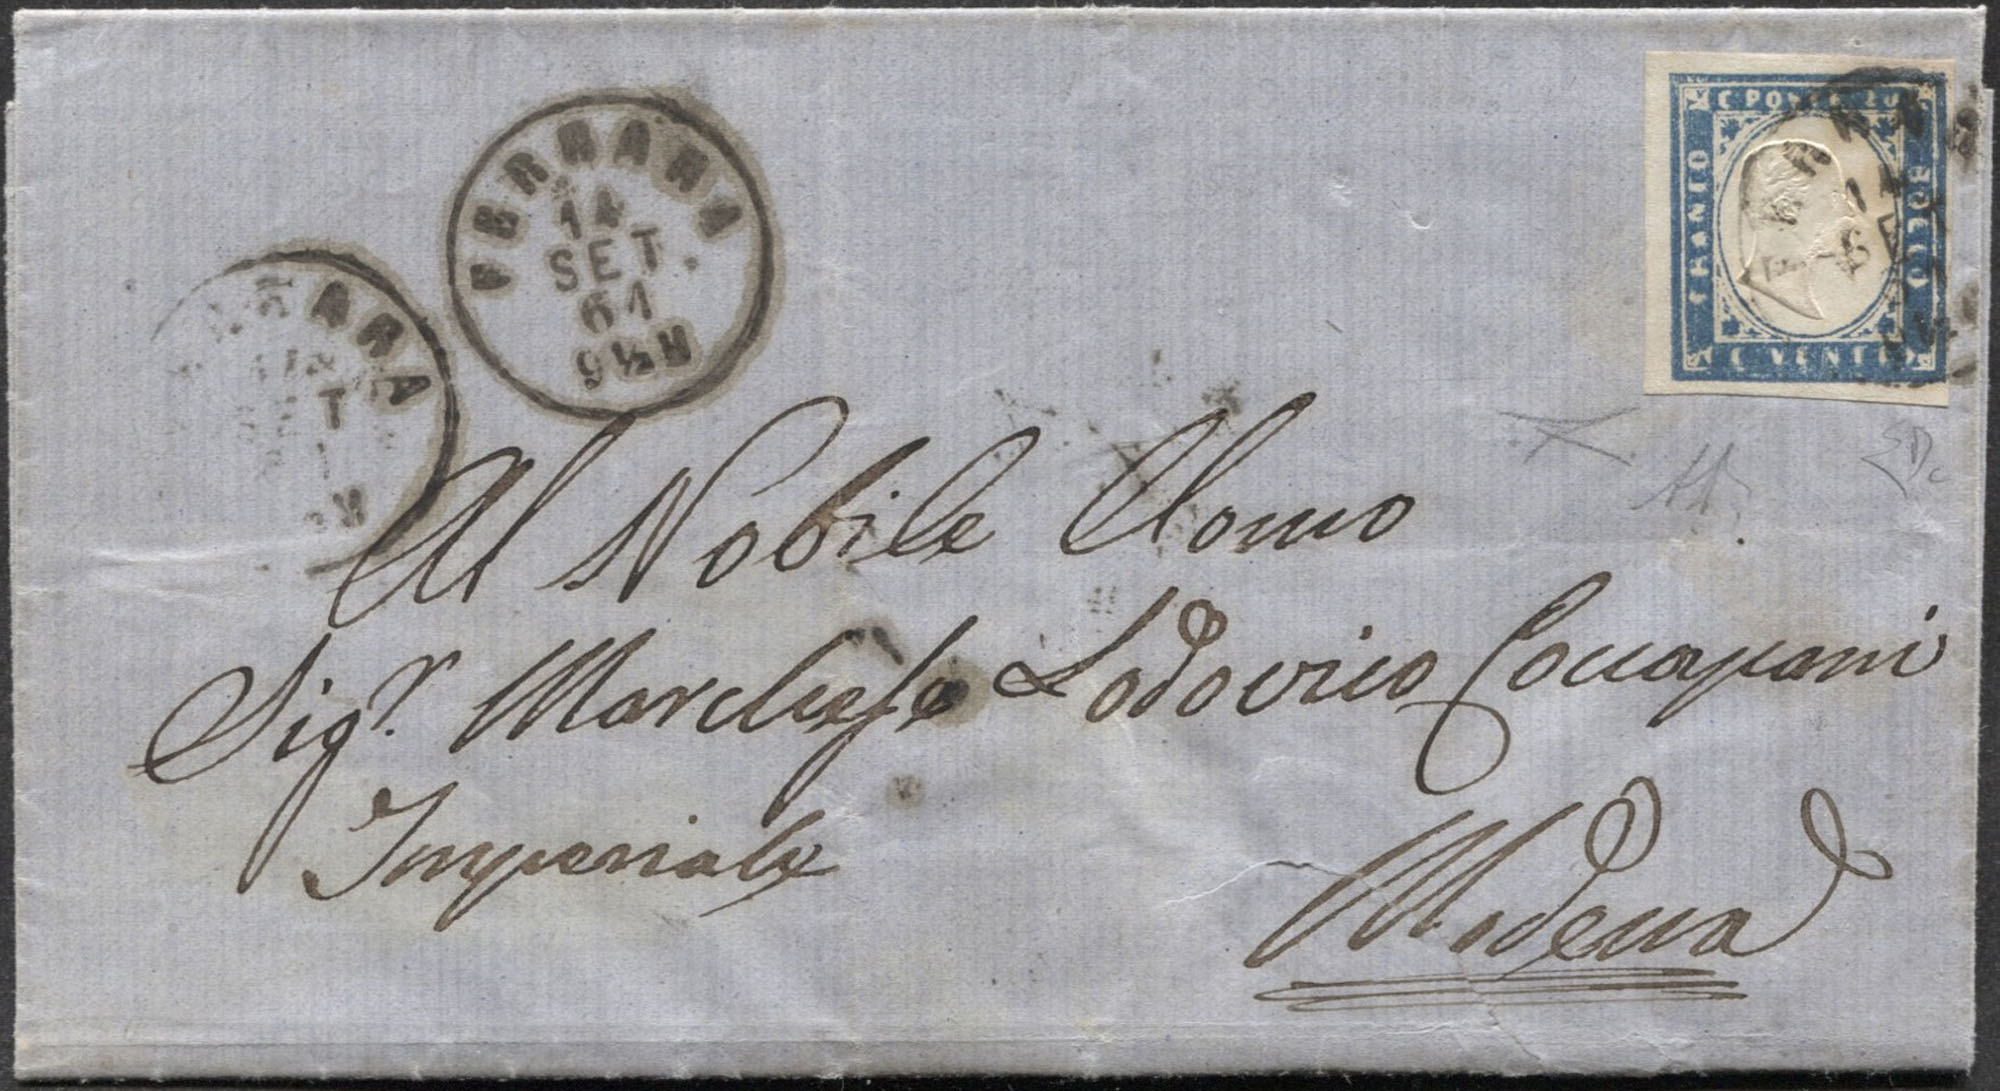 FERRARA
14
SET.
61
9½M
ARA
T
1
M
C POST. 20
FRANCO
BOLLO
C VENTI
14
SET
Al Nobile Uomo
Sigr. Marchese Lodovico Coccapani
Imperiale
Modena